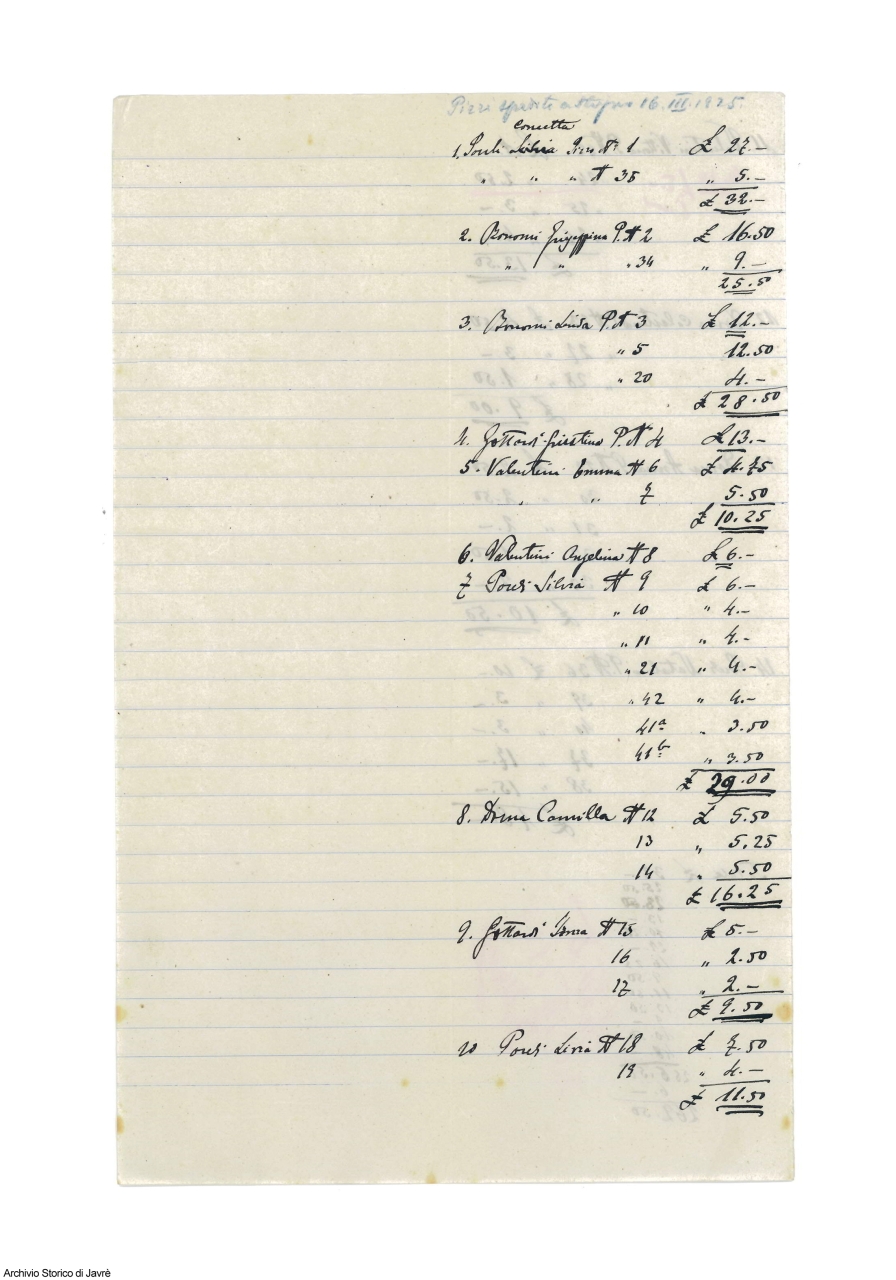 Pizzi spediti a 16.III.1925.
Concetta
1. Ponli Silvia Pizzo N° 1 £ 27.–
" " " N 35 " 5.–
£ 32.–
2. Bonomi Giuseppina P. N 2 £ 16.50
" " " 34 " 9.–
25.50
3. Bonomi Linda P. N 3 £ 12.–
" 5 12.50
" 20 4.–
£ 28.50
4. Gottardi Giustina P. N° 4 £ 13.–
5. Valentini Emma N 6 £ 4.75
" " 7 5.50
£ 10.25
6. Valentini Angelina N 8 £ 6.–
7 Ponli Silvia N 9 £ 6.–
" 10 " 4.–
" 11 " 4.–
" 21 " 4.–
" 42 " 4.–
41a " 3.50
41b " 3.50
£ 29.00
8. Camilla N 12 £ 5.50
13 " 5.25
14 " 5.50
£ 16.25
9. Gottardi N 15 £ 5.–
16 " 2.50
17 " 2.–
£ 9.50
10 Ponli Livia N 18 £ 7.50
19 " 4.–
£ 11.50
Archivio Storico di Javrè